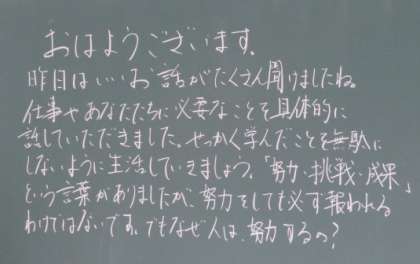 おはようございます。
昨日はいいお話がたくさん聞けましたね。
仕事やあなたたちに必要なことを具体的に
話していただきました。せっかく学んだことを無駄に
しないように生活していきましょう。「努力・挑戦・成果」
という言葉がありましたが、努力をしても必ず報われる
わけではないです。でもなぜ人は、努力するの?